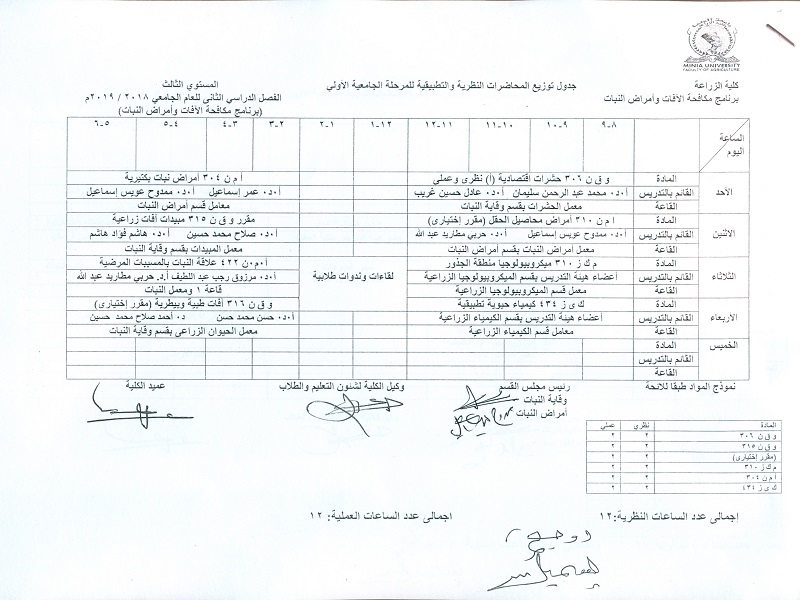 MINIA UNIVERSITY
FACULTY OF AGRICULTURE
كلية الزراعة
برنامج مكافحة الآفات وأمراض النبات
جدول توزيع المحاضرات النظرية والتطبيقية للمرحلة الجامعية الأولى
المستوي الثالث
الفصل الدراسي الثانى للعام الجامعي ٢٠١٨ / ٢٠١٩م
(برنامج مكافحة الآفات وأمراض النبات)
الساعة اليوم ٨-٩ ٩-١٠ ١٠-١١ ١١-١٢ ١٢-١ ١-٢ ٢-٣ ٣-٤ ٤-٥ ٥-٦
الأحد
المادة و ق ن ٣٠٦ حشرات اقتصادية (أ) نظرى وعملى أ م ن ٣٠٤ أمراض نبات بكتيرية
القائم بالتدريس أ.د. محمد عبد الرحمن سليمان أ.د. عادل حسين غريب أ.د. عمر إسماعيل أ.د. ممدوح عويس إسماعيل
القاعة معمل الحشرات بقسم وقاية النبات معامل قسم أمراض النبات
الاثنين
المادة ا م ن ٣١٠ أمراض محاصيل الحقل (مقرر إختيارى) مقرر و ق ن ٣١٥ مبيدات آفات زراعية
القائم بالتدريس أ.د. ممدوح عويس إسماعيل أ.د. حربي مطاريد عبد الله أ.د. صلاح محمد حسين أ.د. هاشم فؤاد هاشم
القاعة معمل أمراض النبات بقسم أمراض النبات معمل المبيدات بقسم وقاية النبات
الثلاثاء
المادة م ك ز ٣١٠ ميكروبيولوجيا منطقة الجذور أ م ن ٤٢٢ علاقة النبات بالمسببات المرضية
القائم بالتدريس أعضاء هيئة التدريس بقسم الميكروبيولوجيا الزراعية لقاءات وندوات طلابية أ.د. مرزوق رجب عبد اللطيف أ.د. حربي مطاريد عبد الله
القاعة معمل قسم الميكروبيولوجيا الزراعية قاعة ١ ومعمل النبات
الأربعاء
المادة ك ى ز ٤٣٤ كيمياء حيوية تطبيقية و ق ن ٣١٦ آفات طبية وبيطرية (مقرر إختيارى)
القائم بالتدريس أعضاء هيئة التدريس بقسم الكيمياء الزراعية أ.د. حسن محمد حسن د. أحمد صلاح محمد حسين
القاعة معامل قسم الكيمياء الزراعية معمل الحيوان الزراعى بقسم وقاية النبات
الخميس
المادة
القائم بالتدريس
القاعة
نموذج المواد طبقا للائحة
رئيس مجلس القسم
وقاية النبات
أمراض النبات
وكيل الكلية لشئون التعليم والطلاب
عميد الكلية
المادة نظرى عملي
و ق ن ٣٠٦ ٢ ٢
و ق ن ٣١٥ ٢ ٢
(مقرر إختيارى) ٢ ٢
م ك ز ٣١٠ ٢ ٢
ا م ن ٣٠٤ ٢ ٢
ك ى ز ٤٣٤ ٢ ٢
إجمالى عدد الساعات النظرية: ١٢
اجمالى عدد الساعات العملية: ١٢